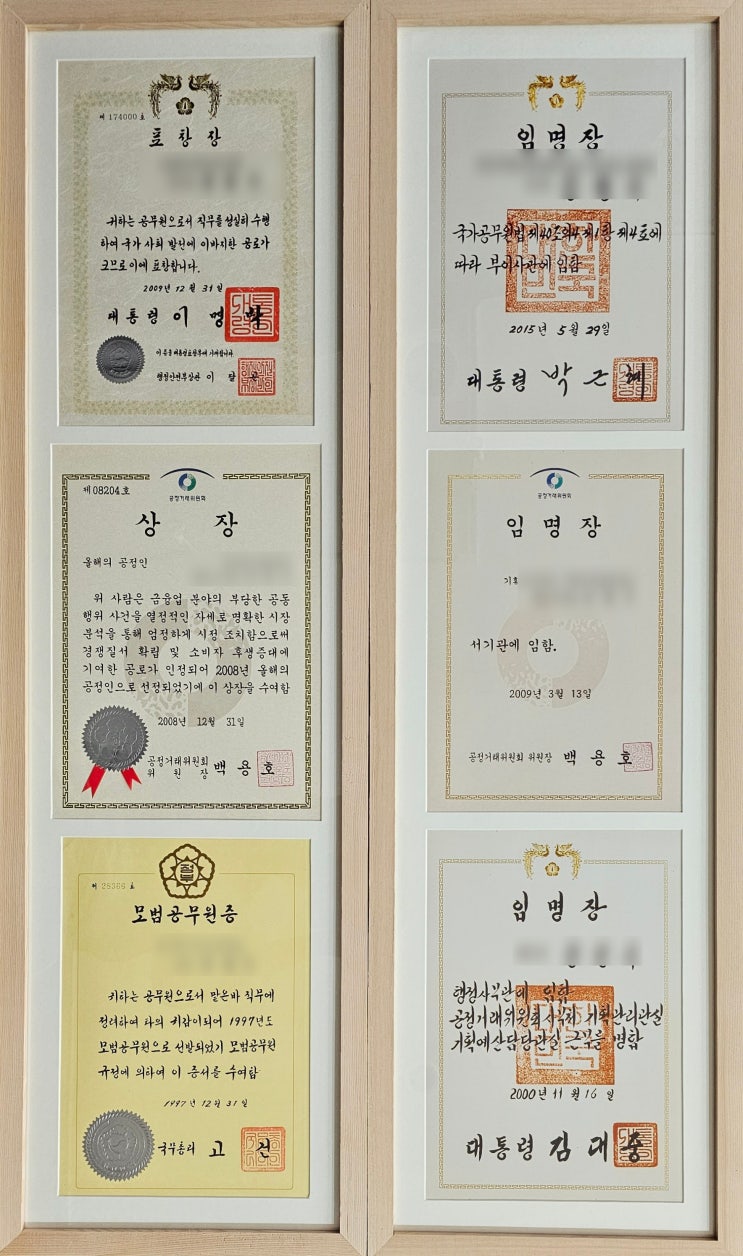 제 174000 호
표 창 장
귀하는 공무원으로서 직무를 성실히 수행
하여 국가 사회 발전에 이바지한 공로가
크므로 이에 표창합니다.
2009년 12월 31일
대통령 이 명 박
이 증을 대통령표창부에 기재합니다.
행정안전부장관 이 달 곤
제08204호
공정거래위원회
상 장
올해의 공정인
위 사람은 금융업 분야의 부당한 공동
행위 사건을 열정적인 자세로 명확한 시장
분석을 통해 엄정하게 시정 조치함으로써
경쟁질서 확립 및 소비자 후생증대에
기여한 공로가 인정되어 2008년 올해의
공정인으로 선정되었기에 이 상장을 수여함
2008년 12월 31일
공정거래위원회
위 원 장 백 용 호
제 25366 호
모범공무원증
귀하는 공무원으로서 맡은바 직무에
정려하여 타의 귀감이되어 1997년도
모범공무원으로 선발되었기 모범공무원
규정에 의하여 이 증서를 수여함
1997년 12월 31일
국무총리 고 건
임 명 장
국가공무원법 제40조의4 제1항 제4호에
따라 부이사관에 임함
2015년 5월 29일
대통령 박 근 혜
공정거래위원회
임 명 장
기후
서기관에 임함.
2009년 3월 13일
공정거래위원회 위원장 백 용 호
임 명 장
행정사무관에 임함
공정거래위원회 사무처 기획관리관실
기획예산담당관실 근무를 명함
2000년 11월 16일
대통령 김 대 중